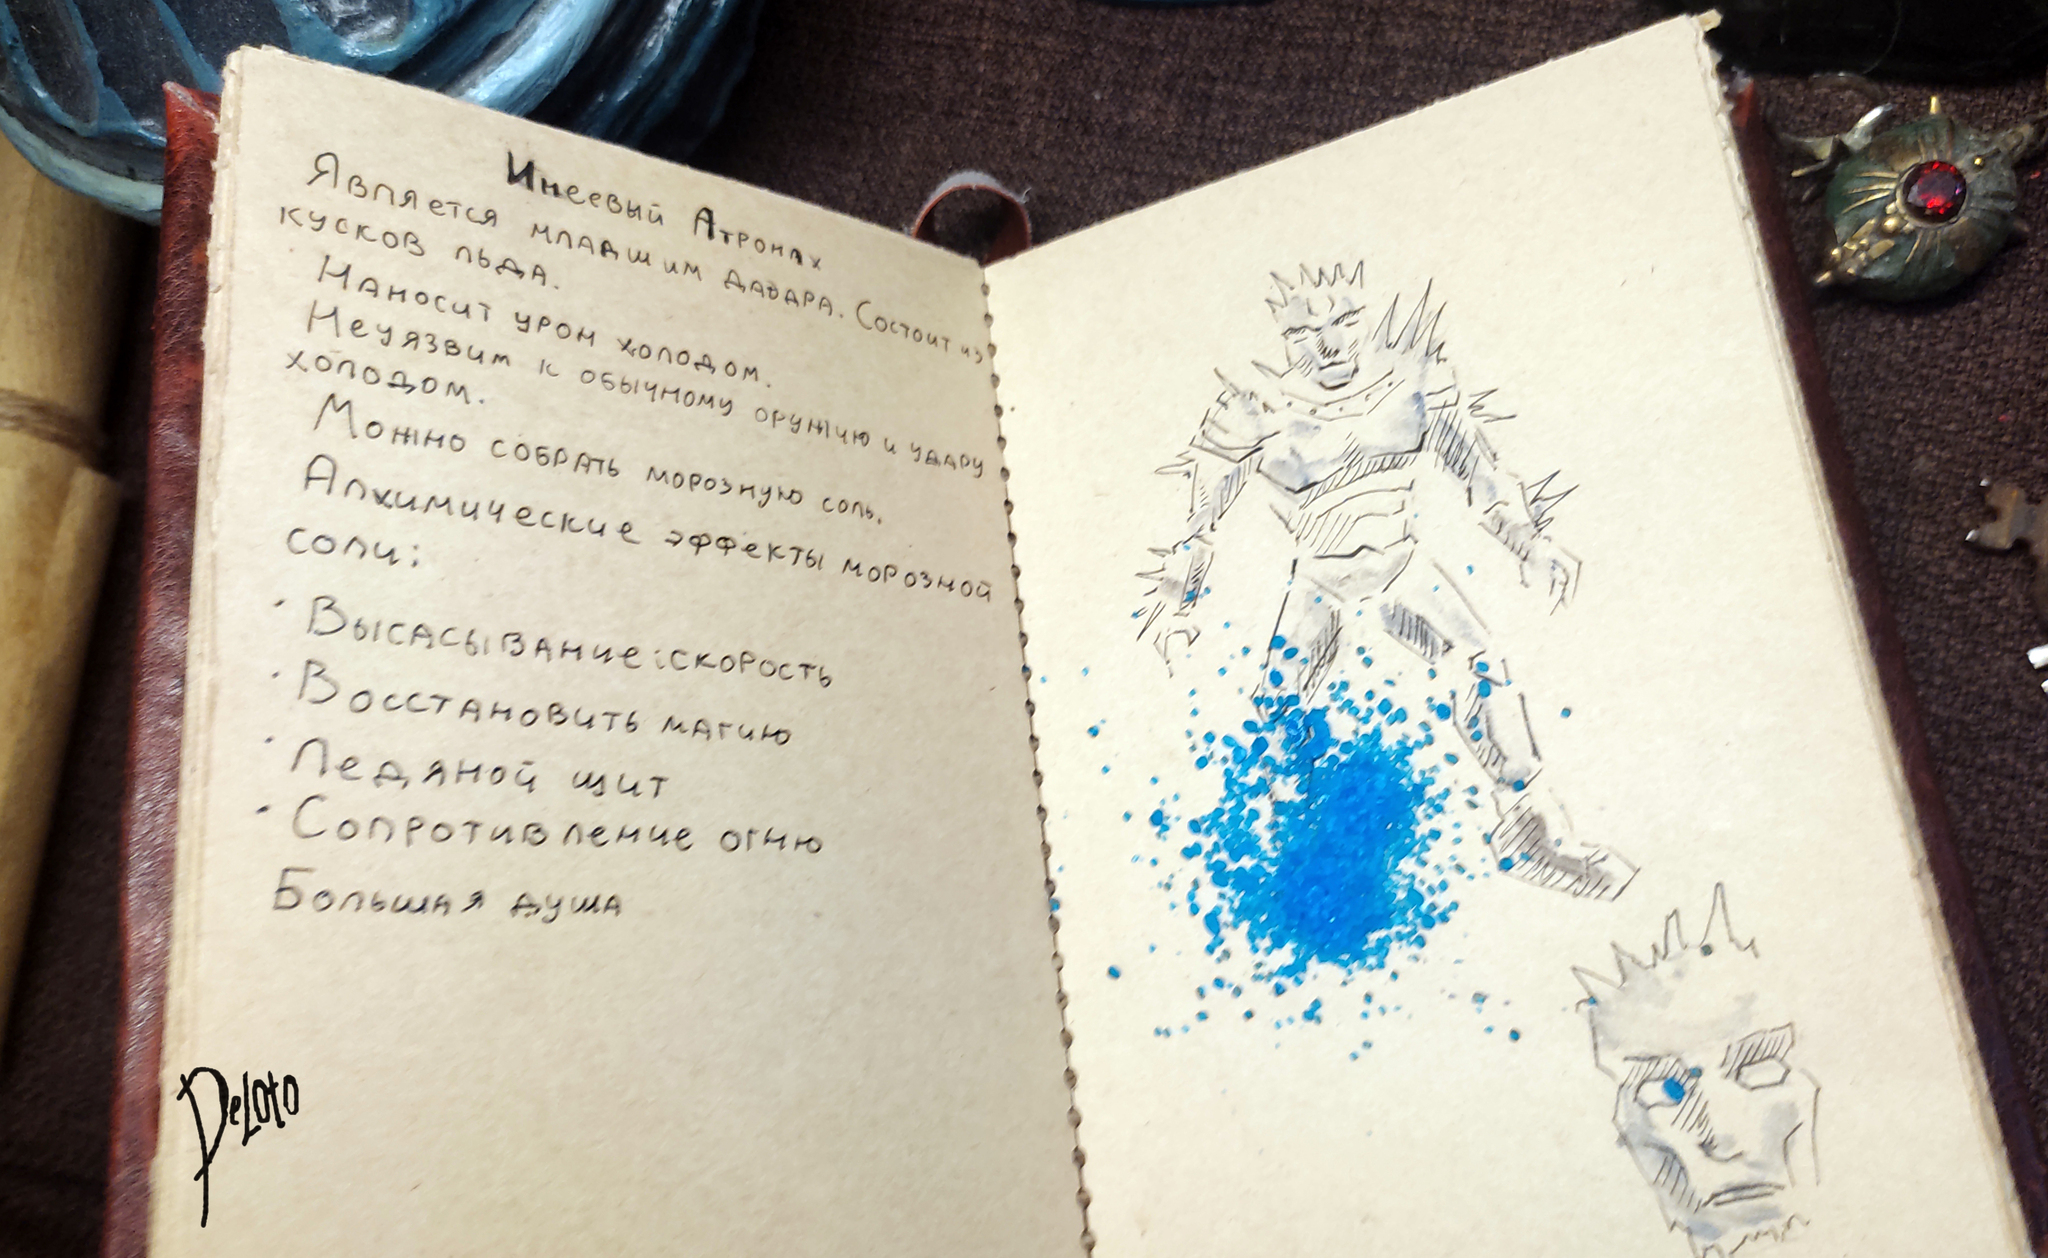 Инеевый Атронах
Является младшим даэдра. Состоит из
кусков льда.
Наносит урон холодом.
Неуязвим к обычному оружию и удару
холодом.
Можно собрать морозную соль.
Алхимические эффекты морозной
соли:
· Высасывание: скорость
· Восстановить магию
· Ледяной щит
· Сопротивление огню
Большая душа
DeLoto